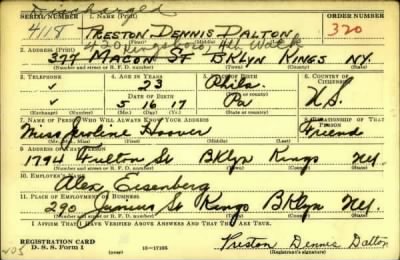 Discharged
SERIAL NUMBER 1. NAME (Print) ORDER NUMBER
4118 PRESTON DENNIS DALTON 320
(First) (Middle) (Last)
2. ADDRESS (Print)
377 MACON ST BKLYN KINGS N.Y.
(Number and street or R. F. D. number) (Town) (County) (State)
3. TELEPHONE 4. AGE IN YEARS 5. PLACE OF BIRTH 6. COUNTRY OF CITIZENSHIP
✓ 23 Phila.
DATE OF BIRTH (Town or county)
✓ 5 16 17 Pa U.S.
(Exchange) (Number) (Mo.) (Day) (Yr.) (State or country)
7. NAME OF PERSON WHO WILL ALWAYS KNOW YOUR ADDRESS 8. RELATIONSHIP OF THAT PERSON
Miss Hoover Friend
(Mr., Mrs., Miss) (First) (Middle) (Last)
9. ADDRESS OF THAT PERSON
1794 Fulton St BKlyn Kings NY.
(Number and street or R. F. D. number) (Town) (County) (State)
10. EMPLOYER'S NAME
Alex Eisenberg
11. PLACE OF EMPLOYMENT OR BUSINESS
290 Junius St Kings BKlyn NY.
(Number and street or R. F. D. number) (Town) (County) (State)
I AFFIRM THAT I HAVE VERIFIED ABOVE ANSWERS AND THAT THEY ARE TRUE.
REGISTRATION CARD
D. S. S. Form 1 (over) 16-17105 Preston Dennis Dalton
(Registrant's signature)